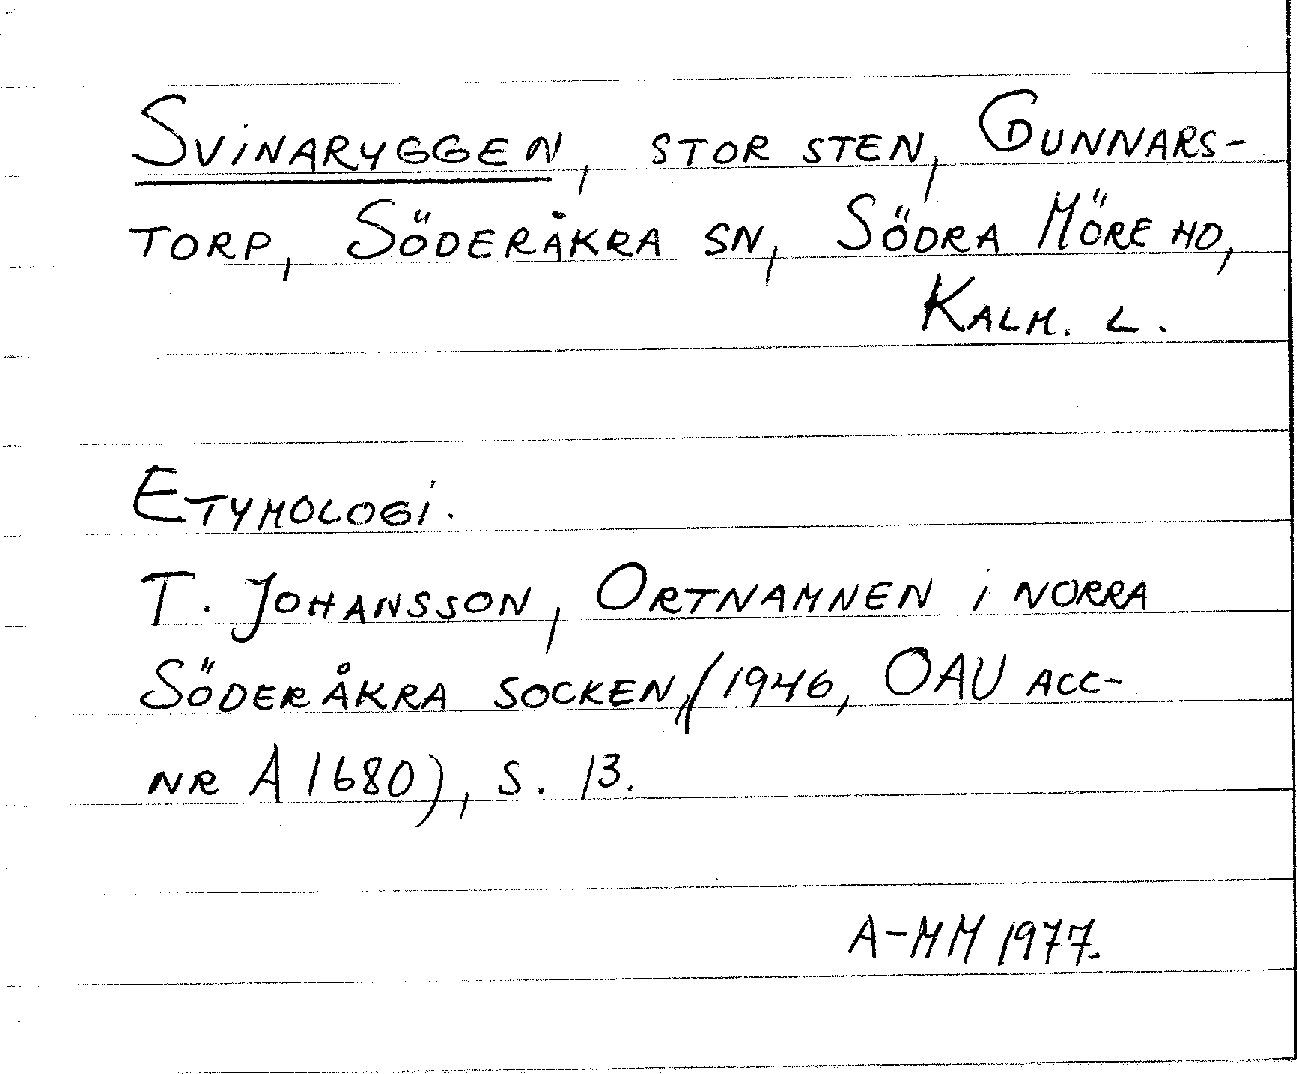 Svinaryggen, stor sten, Gunnars-
torp, Söderåkra sn, Södra Möre hd,
Kalm. l.
Etymologi.
T. Johansson, Ortnamnen i norra
Söderåkra socken, (1946, OAU acc-
nr A 1680), s. 13.
A-MM 1977.